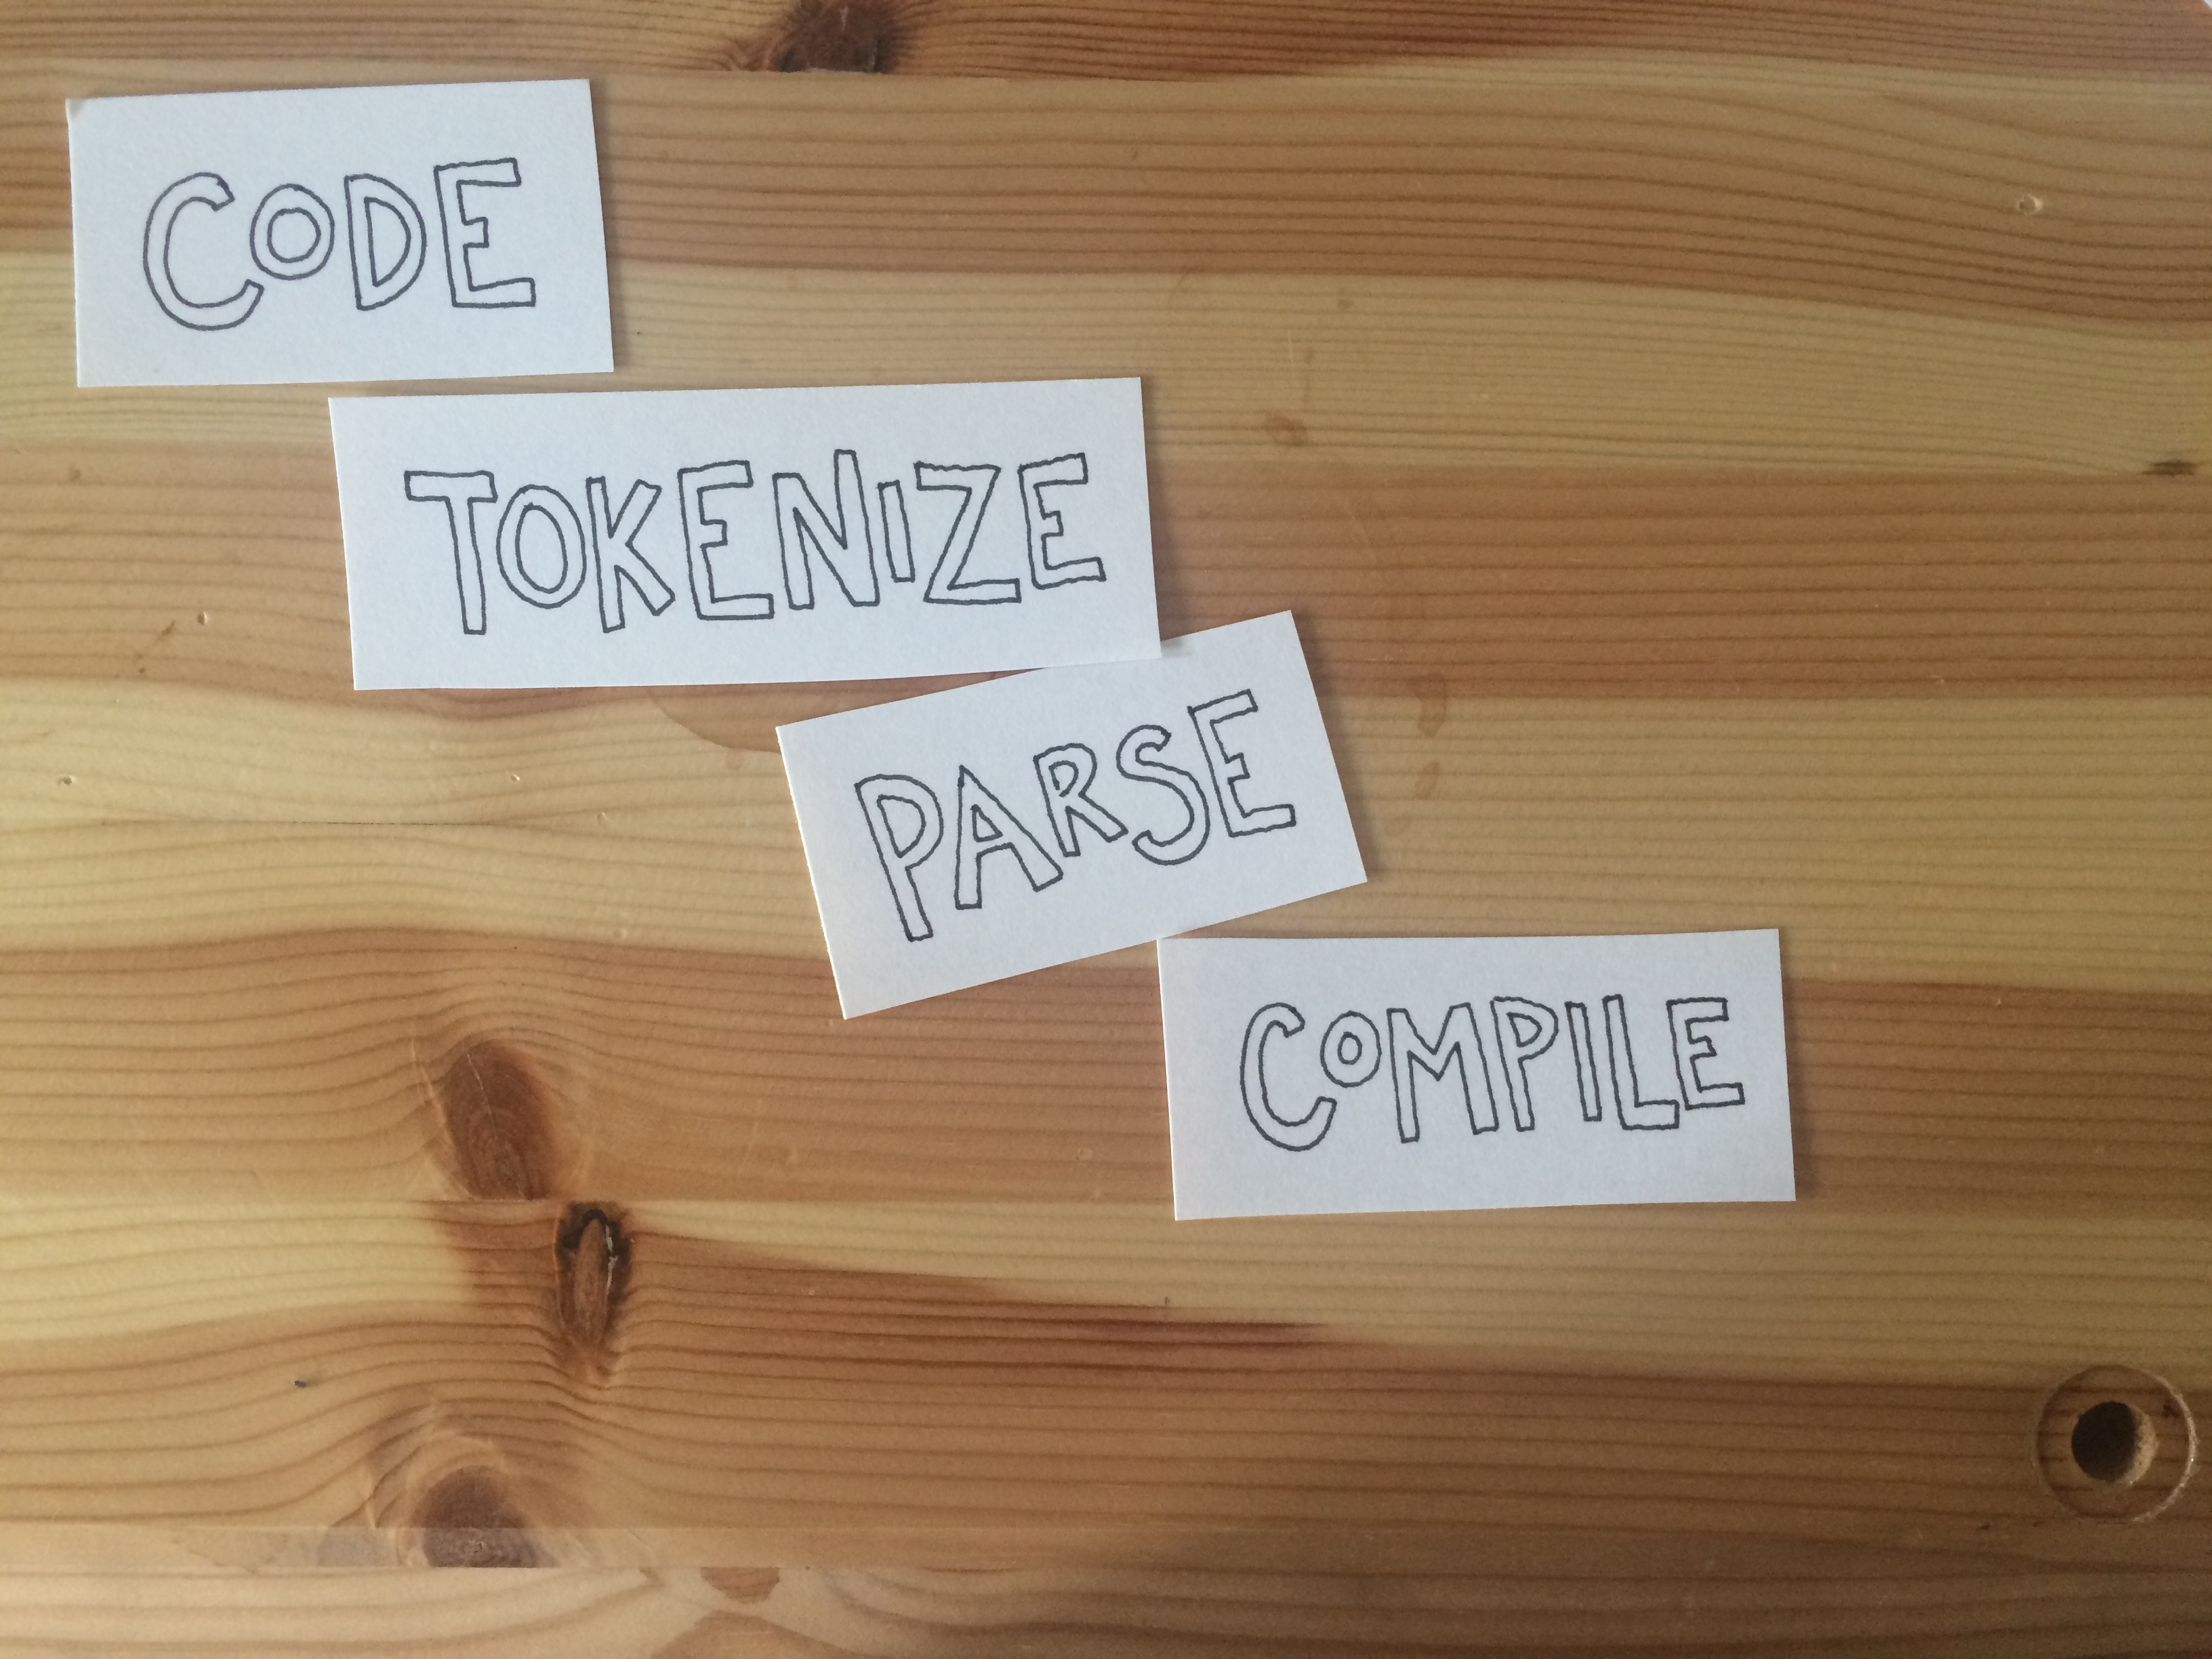 CODE
TOKENIZE
PARSE
COMPILE